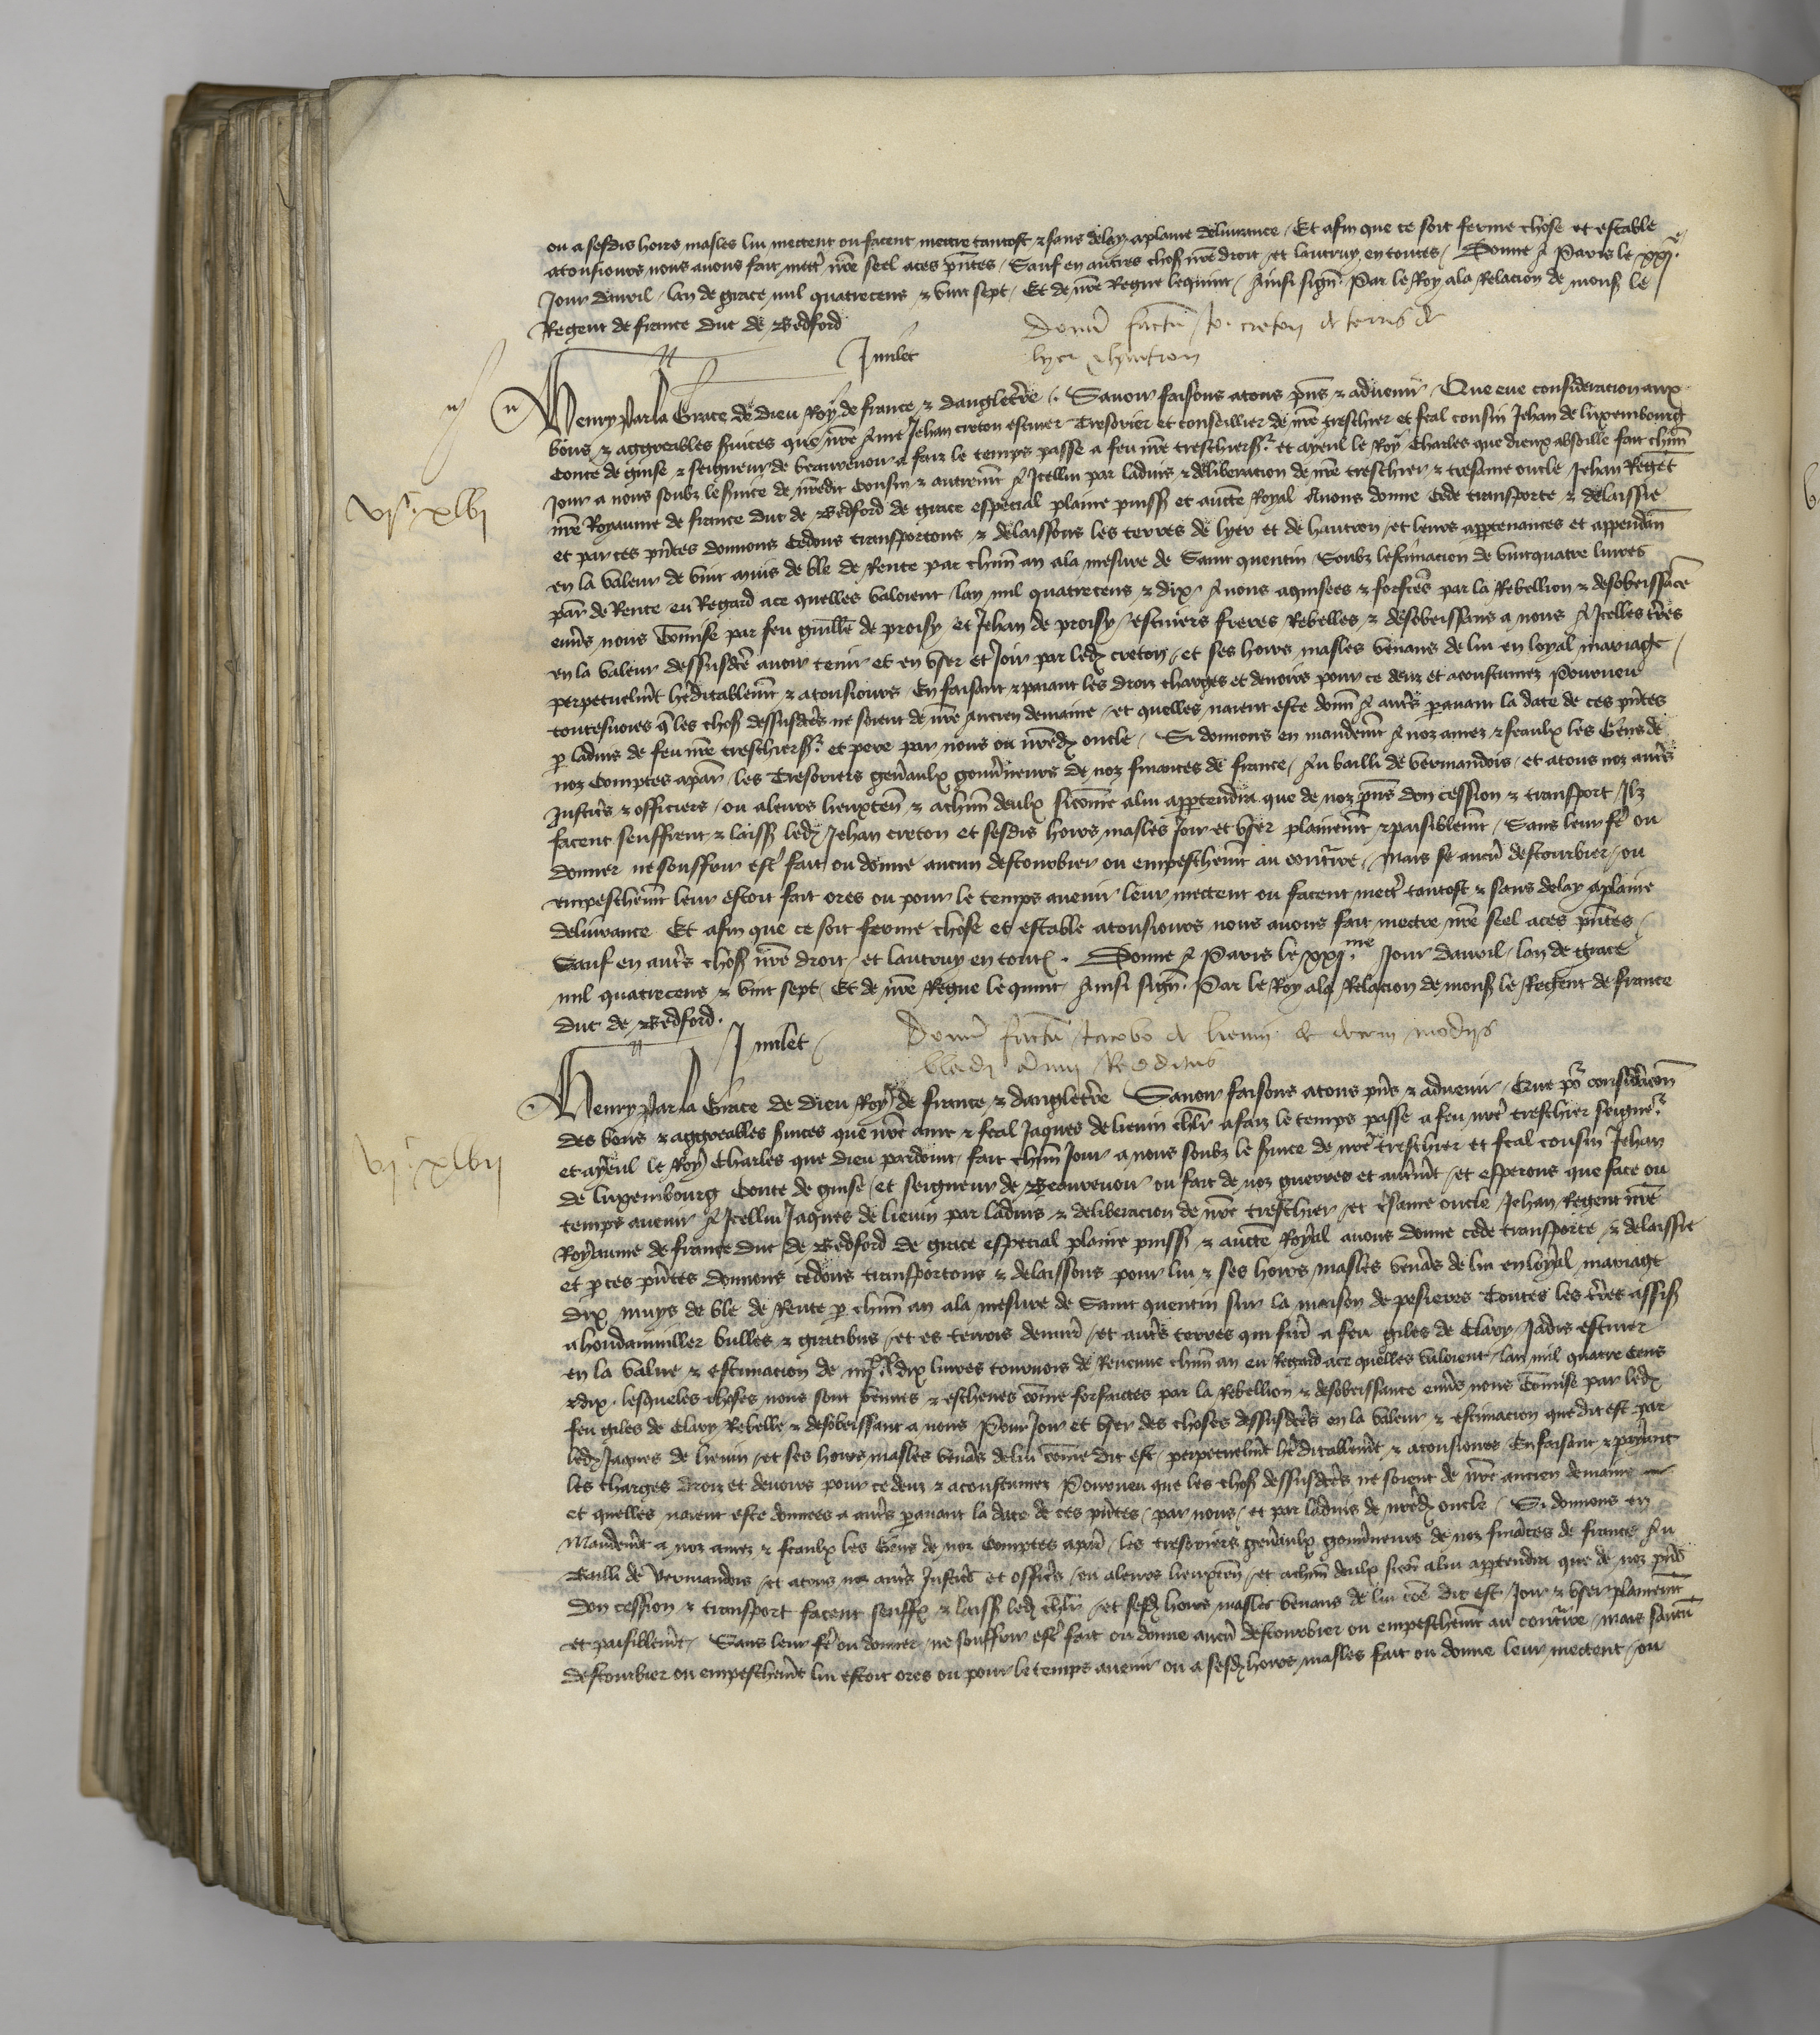 ou a sesdis hoirs masles lui mectent ou facent mectre tantost & sans delay aplaine delivrance / Et afin que ce soit ferme chose et estable
atousiours nous avons fait mectr̄ nr̄e seel aces pn̄tes / Sauf en autres chos̄ nr̄e droit / et lautruy en toutes / Donne A Paris le xxj.e
Jour davril / lan de grace mil quatrecens & vint sept / Et de nr̄e Regne lequint / Ainsi sign̄. Par le Roy ala Relacion de mons̄ le
Regent de france duc de Bedford
Donū factū Jo. creton de terris de
Jmilet
lyer & hautron
Henry Par la Grace de dieu Roy de france & dangletr̄e. Savoir faisons atous pn̄s & advenir / Que eue consideracion aux
bons & aggreables s̄uices que nr̄e Ame Jehan creton escuier Tresorier et conseillier de nr̄e treschier et feal cousin Jehan de luxembourg
Conte de guise & seigneur de beaurevoir a faiz le temps passe a feu nr̄e treschiers.r et ayeul le Roy Charles que dieux absoille fait chūn
Jour a nous soubz le s̄uice de nr̄edit Cousin & autremēt A Jcellui par ladvis & deliberacion de nr̄e treschier & tresame oncle Jehan Regēt
nr̄e Royaume de france duc de Bedford de grace especial plaine puiss̄ et aucte Royal Avons donne Cede transporte & delaissie
et par ces pn̄tes donnons Cedons transportons & delaissons les terres de lyer et de hautron / et leurs appartenances et appendan̄
en la valeur de vint muis de ble de Rente par chūn an ala mesure de Saint quentin Soubz lestimacion de vintquatre livres
par̄ de Rente eu Regard ace quelles valoient / lan mil quatrecens & dix / A nous acquises & forfēes par la Rebellion & desobeissāce
env̄s nous Cōmise par feu guill̄e de proisy et Jehan de proisy / escuiers freres Rebelles & desobeissans a nous A Jcelles tr̄es
en la valeur dessusdc̄e avoir tenir et en vser et Joir par led̄ creton / et ses hoirs masles venans de lui en loyal mariage /
perpetuelmēt hr̄editablemēt & atousiours / En faisant & paiant les droiz charges et devoirs pour ce deuz et acoustumez Pourveu
toutesvoies q̄ les chos̄ dessusdc̄es ne soient de nr̄e Ancien demaine / et quelles naient este donn̄ A autr̄s paravant la date de ces pn̄tes
p̄ ladvis de feu nr̄e treschiers.r et pere par nous ou nr̄ed̄ oncle / Si donnons en mandemēt A noz amez & feaulx les Gens de
noz Comptes apar̄ / les Tresoriers gen̄aulx gouv̄neurs de noz finances de france / Au bailli de vermandois / et atous noz autr̄s
Justic̄s & officiers / ou aleurs lieuxten̄ & achūn deulx sicōme alui appartendra que de noz pn̄s don cession & transport / Jlz
facent seuffrent & laiss̄ led̄ Jehan creton et sesdis hoirs masles Joir et vser plainemēt & paisiblemēt / Sans leur fr̄e ou
donner ne souffrir estr̄ fait ou donne aucun destourbier ou empeschemēt au contr̄ire / Mais se aucū destourbier / ou
empeschemēt leur estoit fait ores ou pour le temps avenir leur mectent ou facent mectr̄ tantost & sans delay aplaine
delivrance Et afin que ce soit ferme chose et estable atousiours nous avons fait mectre nr̄e seel aces pn̄tes /
Sauf en autr̄s chos̄ nr̄e droit / et lautruy en toutes. Donne A Paris le xxj.me Jour davril / lan de grace
mil quatrecens & vint sept / Et de nr̄e Regne lequint / Ainsi sign̄. Par le Roy ala Relacion de mons̄ le Regent de france
duc de Bedford.
Jmilet /
Donū factū Jacobo de lievin de decem modijs
bladi Annui Redditus
Henry Par la Grace de dieu Roy de france & dangletr̄e Savoir faisons atous pn̄s & advenir / Que po.r considēcōn
des bons & aggreables s̄uices que nr̄e ame & feal Jaques de lievin chlr̄ a faiz le temps passe a feu nr̄e treschier seigne.r
et ayeul le Roy Charles que dieu pardoint / fait chūn Jour a nous soubz le s̄uice de nr̄e treschier et feal cousin Jehan
de luxembourg Conte de guise / et seigneur de Beaurevoir ou fait de noz guerres et autrēmt / et esperons que face ou
temps avenir A Jcellui Jaques de lievin par ladvis & deliberacion de nr̄e treschier / et tr̄same oncle / Jehan Regent nr̄e
Royaume de france duc de Bedford de grace especial plaine puiss̄ & aucte Royal avons donne cede transporte & delaissie
et p̄ ces pn̄tes donnons cedons transportons & delaissons pour lui & ses hoirs masles venās de lui en loyal mariage
dix muys de ble de Rente p̄ chūn an ala mesure de Saint quentin sur la maison de pesieres Toutes les tr̄es assis̄
a hondainviller bulles & giraubus / et es terrois denuirō / et autr̄s terres qui furēt a feu giles de Clary / Jadis escuier
en la value & estimacion de iiij.xx dix livres tournois de Revenue chūn an eu Regard ace quelles valoient / lan mil quatre cens
& dix / lesqueles choses nous sont venues & escheues cōme forfaictes par la Rebellion & desobeissance env̄s nous Cōmise par led̄
feu giles de Clary Rebelle & desobeissant a nous Pour Joir et vser des choses dessusdc̄es en la valeur & estimacion que dit est par
led̄ Jaques de lievin / et ses hoirs masles venās de lui cōme dit est / perpetuelmēt hr̄editablemēt & atousiours En faisant & paiant
les charges droiz et devoirs pour ce deuz & acoustumez Pourveu que les chos̄ dessusdc̄es ne soient de nr̄e ancien demaine
et quelles naient este donnees a autr̄s paravant la date de ces pn̄tes / par nous / et par ladvis de nr̄ed̄ oncle / Si donnons en
Mandemēt a noz amez & feaulx les Gens de noz Comptes apar̄ / les tresoriers gen̄aulx gouv̄neurs de noz fināces de france Au
Bailli de vermandois / et atous noz autr̄s Justic̄s et offic̄s / ou aleurs lieuxten̄ / et achūn deulx sicōe alui appartendra que de noz pn̄s
don cession & transport facent seuffr̄ & laiss̄ led̄ chlr̄ / et sesd̄ hoirs masles venans de lui cōe dit est / Joir & vser plainemēt
et paisiblemēt / Sans leur fr̄e ou donner / ne souffrir estr̄ fait ou donne aucū destourbier ou empeschemēt au contr̄ire / mais saucū
destourbier ou empeschemēt lui estoit ores ou pour le temps avenir ou a sesd̄ hoirs masles fait ou donne leur mectent / ou
vj.c xlvj
vj.c xlvij